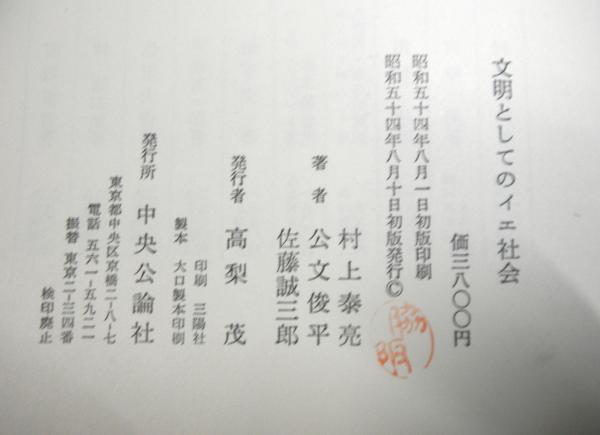 文明としてのイエ社会
価三八〇〇円
昭和五十四年八月一日初版印刷
昭和五十四年八月十日初版発行©
著者
村上泰亮
公文俊平
佐藤誠三郎
発行者 高梨茂
印刷 三陽社
製本 大口製本印刷
発行所 中央公論社
東京都中央区京橋二-八-七
電話 五六一-五九二一
振替 東京二-三四番
検印廃止